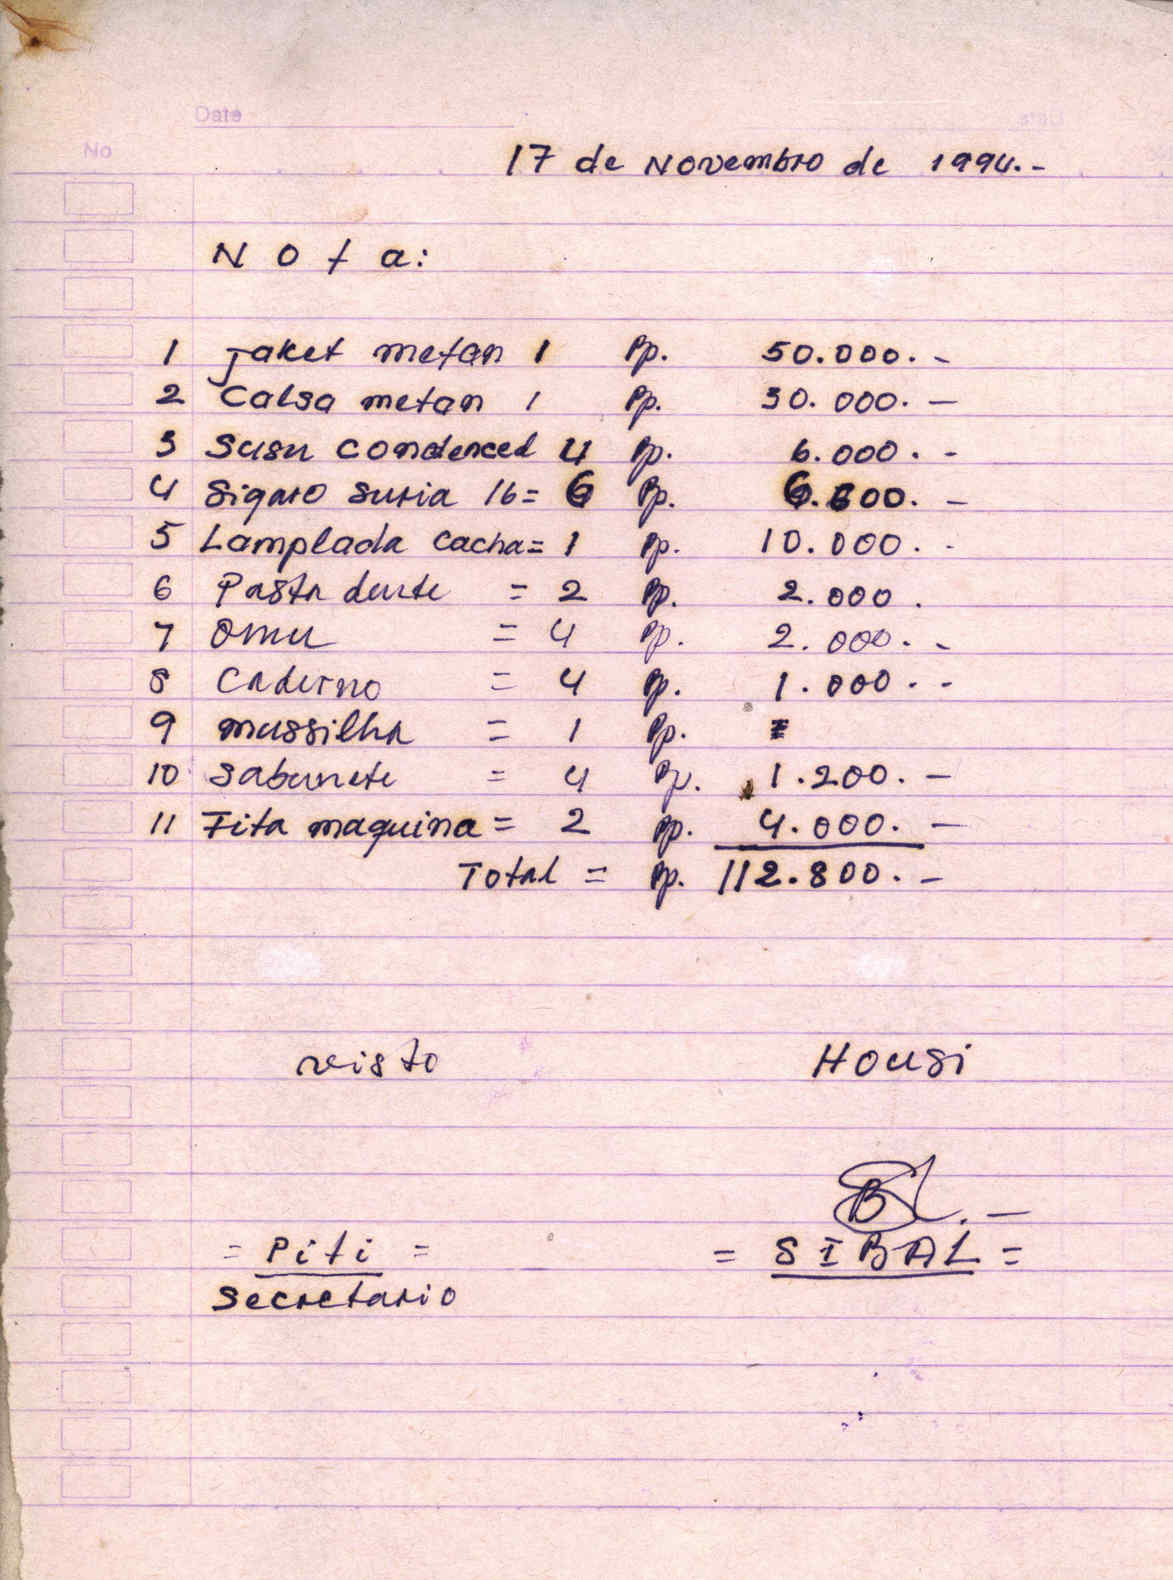 Date
No
17 de Novembro de 1994.-
Nota:
1 Jaket metan 1 Rp. 50.000.-
2 Calsa metan 1 Rp. 30.000.-
3 Susu Condenced 4 Rp. 6.000.-
4 Sigaro suria 16 = 6 Rp. 6.600.-
5 Lamplada cacha = 1 Rp. 10.000.-
6 Pasta dente = 2 Rp. 2.000.
7 Omu = 4 Rp. 2.000.-
8 Caderno = 4 Rp. 1.000.-
9 mussilha = 1 Rp.
10 Sabunete = 4 Rp. 1.200.-
11 Fita maquina = 2 Rp. 4.000.-
Total = Rp. 112.800.-
visto Housi
= Piti = = SIBAL =
Secretario